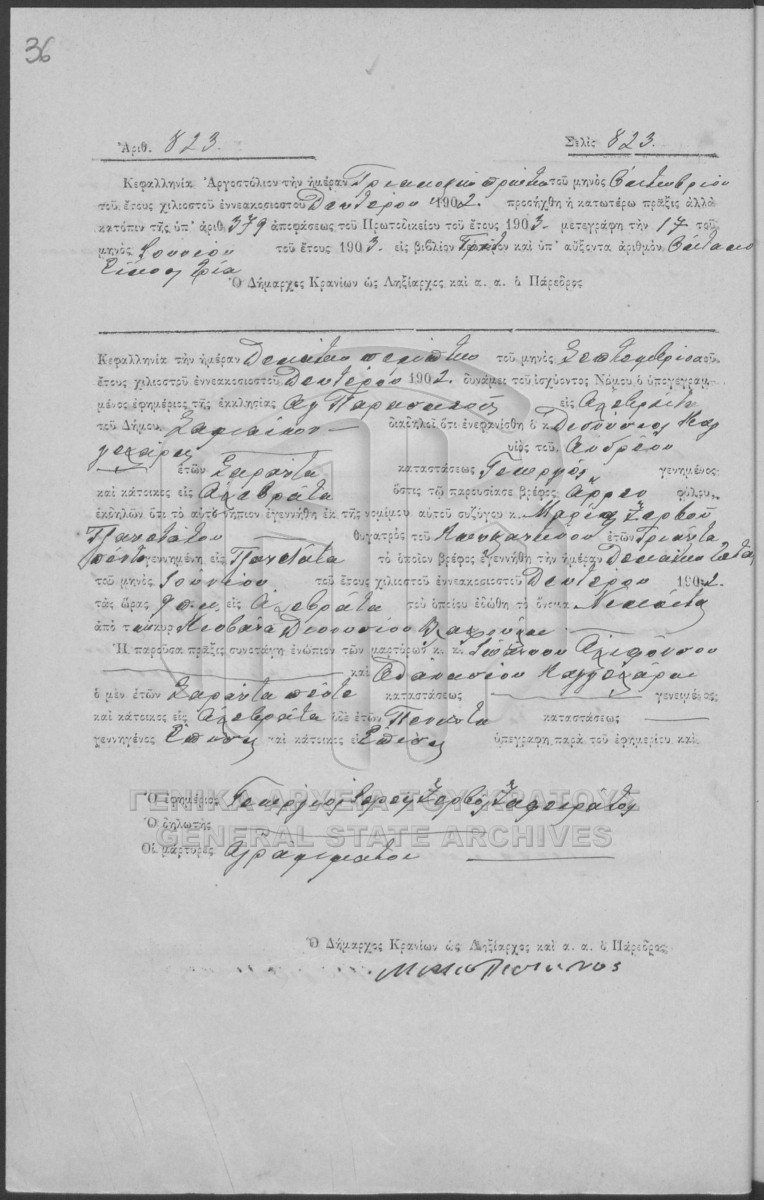 36
Ἀριθ. 823. Σελὶς 823.
Κεφαλληνία Ἀργοστόλιον τὴν ἡμέραν Τριακοστὴν πρώτην τοῦ μηνὸς Ὀκτωβρίου
τοῦ ἔτους χιλιοστοῦ ἐννεακοσιοστοῦ Δευτέρου 1902. προσήχθη ἡ κατωτέρω πρᾶξις ἀλλὰ
κατόπιν τῆς ὑπ' ἀριθ. 379 ἀποφάσεως τοῦ Πρωτοδικείου τοῦ ἔτους 1903. μετεγράφη τὴν 17 τοῦ
μηνὸς Ἰουνίου τοῦ ἔτους 1903. εἰς βιβλίον Πρῶτον καὶ ὑπ' αὔξοντα ἀριθμὸν Ὀκτακόσ
Εἴκοσι τρία
Ὁ Δήμαρχος Κρανίων ὡς Ληξίαρχος καὶ α. α. ὁ Πάρεδρος
Κεφαλληνία τὴν ἡμέραν Δεκάτην πέμπτην τοῦ μηνὸς Σεπτεμβρίου τοῦ
ἔτους χιλιοστοῦ ἐννεακοσιοστοῦ Δευτέρου 1902. δυνάμει τοῦ ἰσχύοντος Νόμου, ὁ ὑπογεγραμ-
μένος ἐφημέριος τῆς ἐκκλησίας Αγ Παρασκευῆς εἰς
τοῦ Δήμου διαδηλοῖ ὅτι ἐνεφανίσθη ὁ κ. Διονύσιος Καγ
γελάρης υἱὸς τοῦ Ἀνδρέου
ἐτῶν Σαράντα καταστάσεως Γεωργὸς γενημένος
καὶ κάτοικος εἰς ὅστις τῷ παρουσίασε βρέφος ἄρρεν φύλου,
ἐκδηλῶν ὅτι τὸ αὐτὸ νήπιον ἐγεννήθη ἐκ τῆς νομίμου αὐτοῦ συζύγου κ. Μαρίας Ζερβοῦ
θυγατρὸς τοῦ ἐτῶν Τριάντα
πέντε γεννημένη εἰς τὸ ὁποῖον βρέφος ἐγεννήθη τὴν ἡμέραν
τοῦ μηνὸς Ἰουνίου τοῦ ἔτους χιλιοστοῦ ἐννεακοσιοστοῦ Δευτέρου 1902.
τὰς ὥρας 9 π.μ. εἰς τοῦ ὁποίου ἐδώθη τὸ ὄνομα
ἀπὸ τ Διονυσίου
Ἡ παροῦσα πρᾶξις συνετάγη ἐνώπιον τῶν μαρτύρων κ. κ. Ἰωάννου
καὶ Ἀθανασίου Καγγελάρη
ὁ μὲν ἐτῶν Σαράντα πέντε καταστάσεως γενειμένος
καὶ κάτοικος εἰς ὁ δὲ ἐτῶν Πενήντα καταστάσεως
γεννηγένος Ἐπίσης καὶ κάτοικος εἰς Ἐπίσης ὑπεγράφη παρὰ τοῦ ἐφημερίου καὶ
Ὁ ἐφημέριος Γεώργιος Ἱερεὺς Ζερβὸς
ΓΕΝΙΚΑ ΑΡΧΕΙΑ ΤΟΥ ΚΡΑΤΟΥΣ
Ὁ δηλωτὴς
GENERAL STATE ARCHIVES
Οἱ μάρτυρες ἀγράμματοι
Ὁ Δήμαρχος Κρανίων ὡς Ληξίαρχος καὶ α. α. ὁ Πάρεδρος